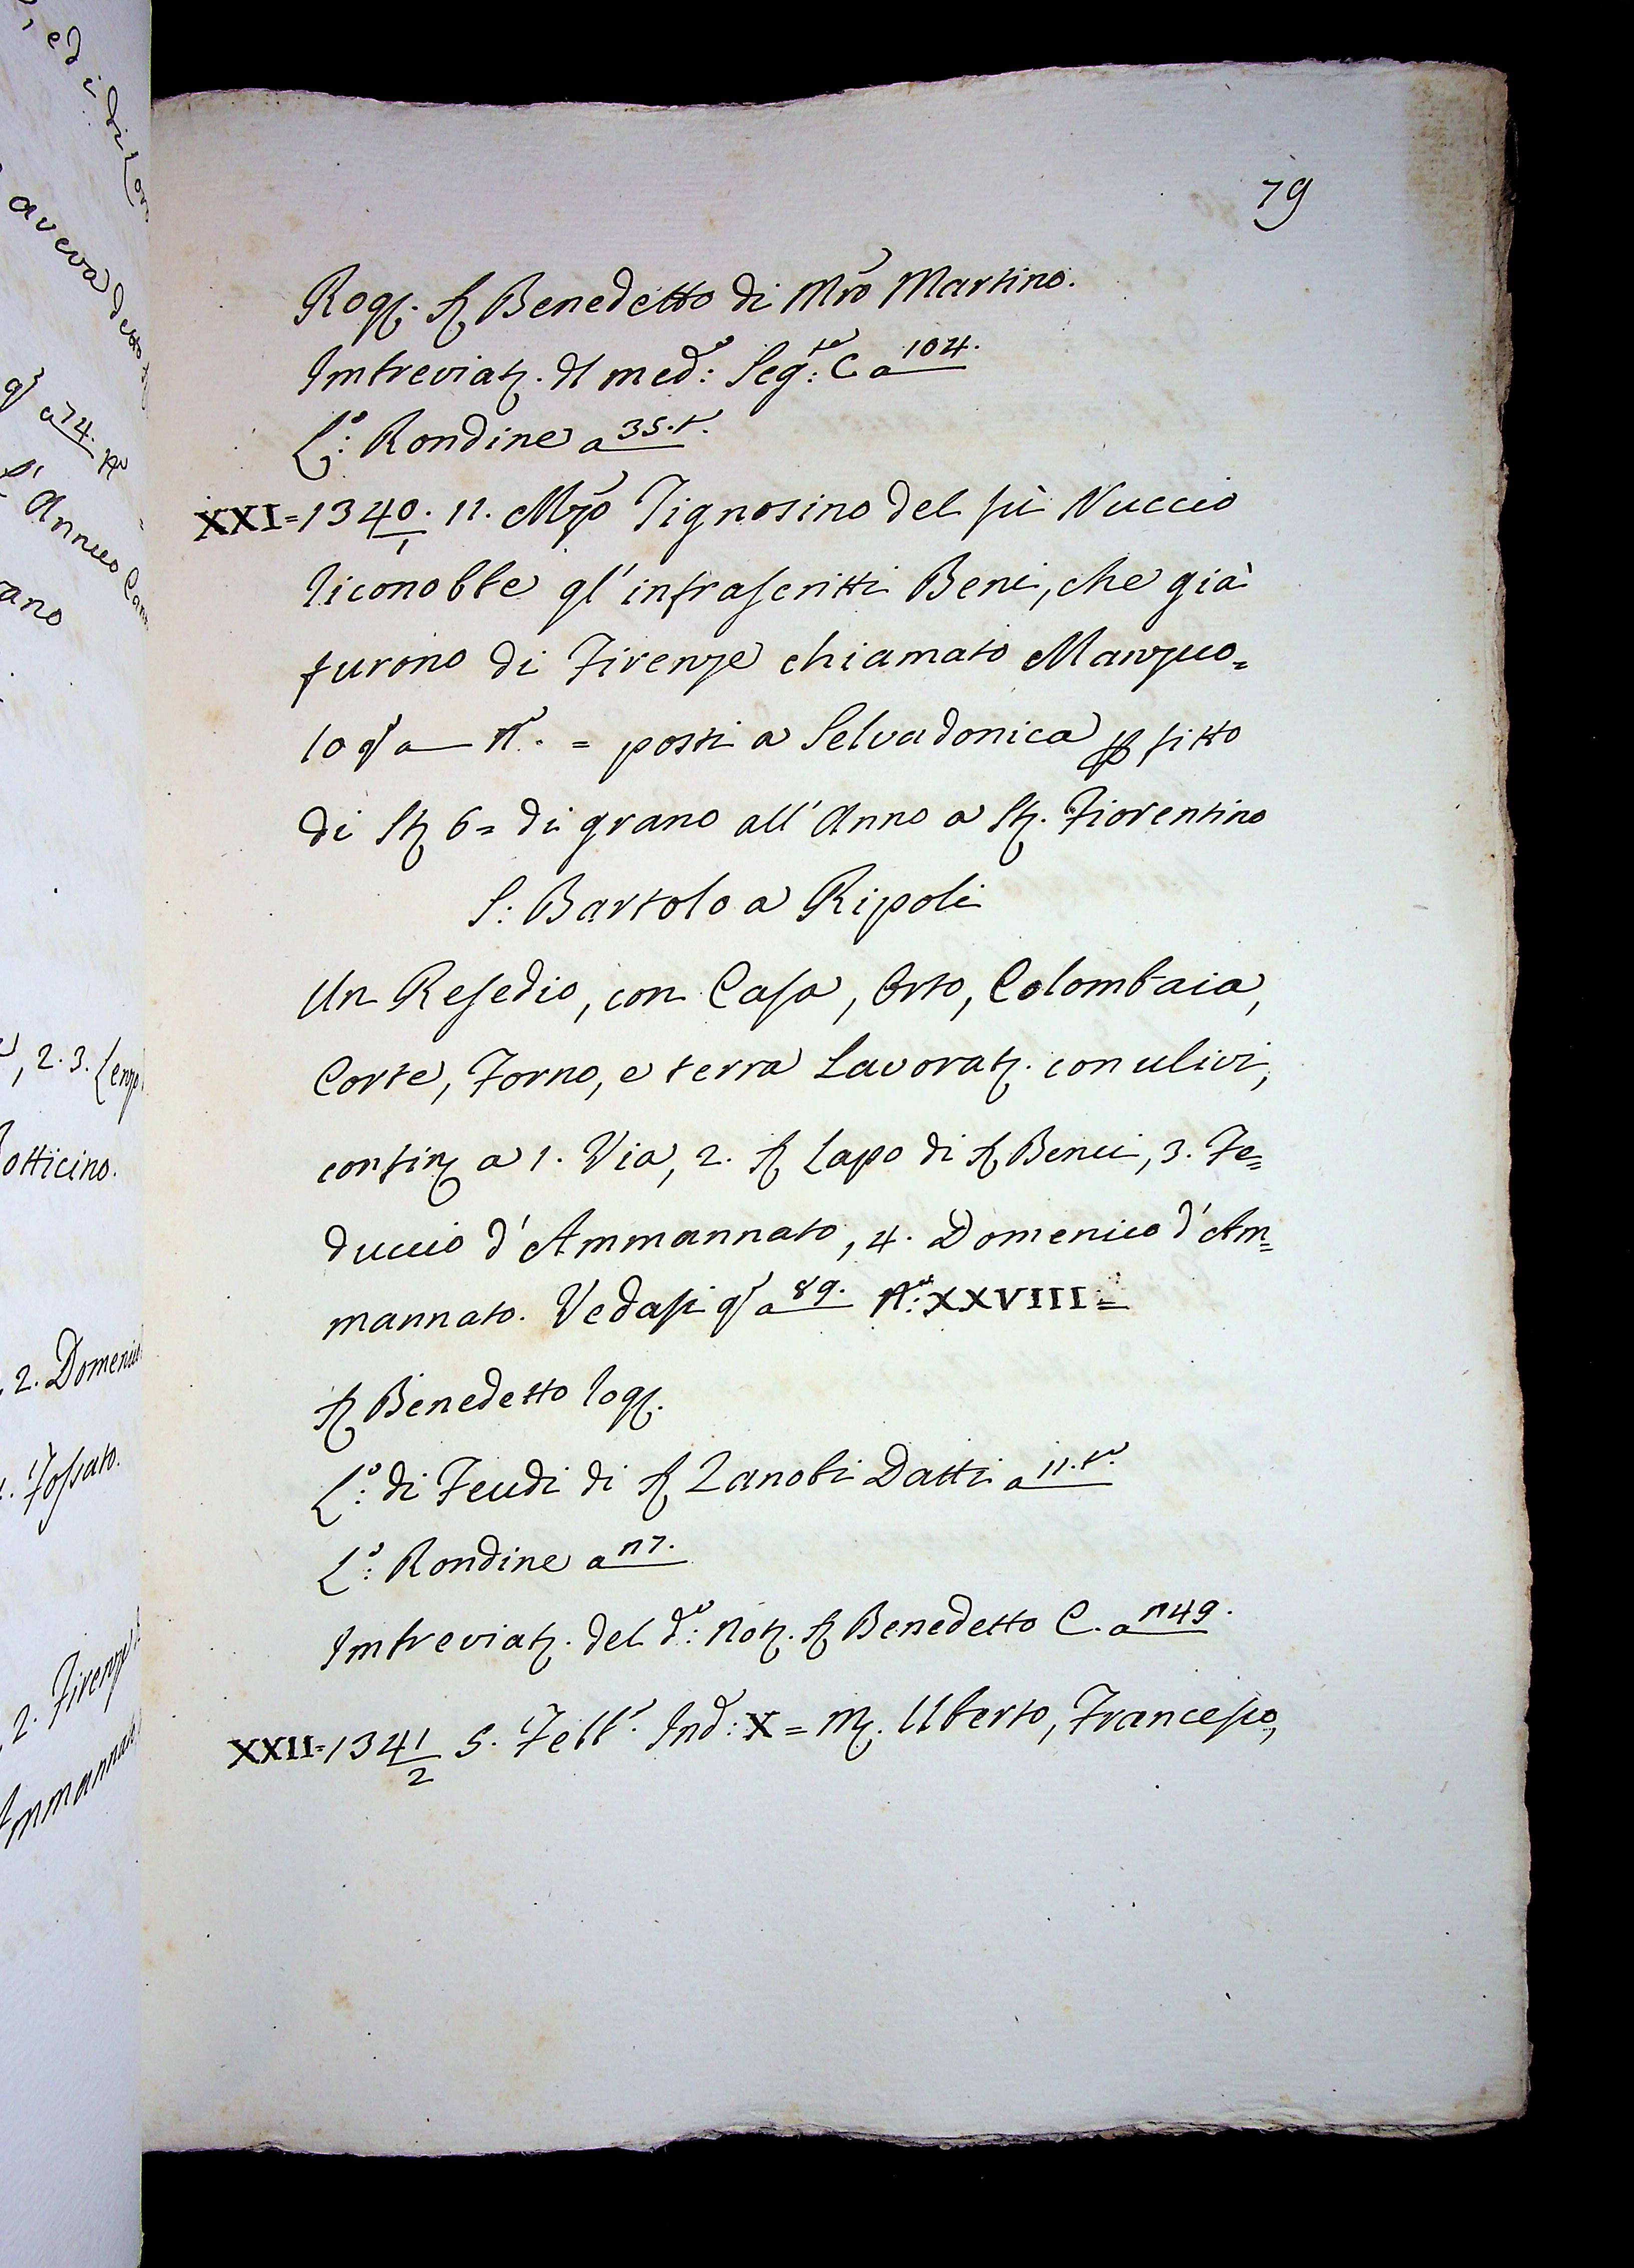 79
Rog. S. Benedetto di Mro Martino.
Imbreviaz. dl med:o Seg:te C a 104.
L:o Rondine a 35.t.
XXI = 1340/1. 11. Mzo Tignosino del fù Nuccio
riconobbe gl'infrascritti Beni, che già
furono di Firenze chiamato Manzuo=
lo qsto a — No. = posti a Selvadonica p fitto
di St 6 = di grano all'Anno a St. Fiorentino
S: Bartolo a Ripoli
Un Resedio, con Casa, Orto, Colombaia,
Corte, Forno, e terra Lavorat. con ulivi,
confin a 1. Via, 2. S. Lapo di S. Benci, 3. Fe=
duccio d'Ammannato, 4. Domenico d'Am=
mannato. Vedasi qsto a 89. No: XXVIII =
S. Benedetto rog.
L:o di Feudi di S. Zanobi Datti a 11.t.
L:o Rondine a 117.
Imbreviaz. del d:o Not. S. Benedetto C. a 1149.
XXII = 1341/2 5. Febb. Ind: X = M. Uberto, Francesco,
aveva detto
a 74. No
Annuo
ano
, 2. 3.
otticino.
2. Domenico
Fossato.
2. Firenze
Ammannato